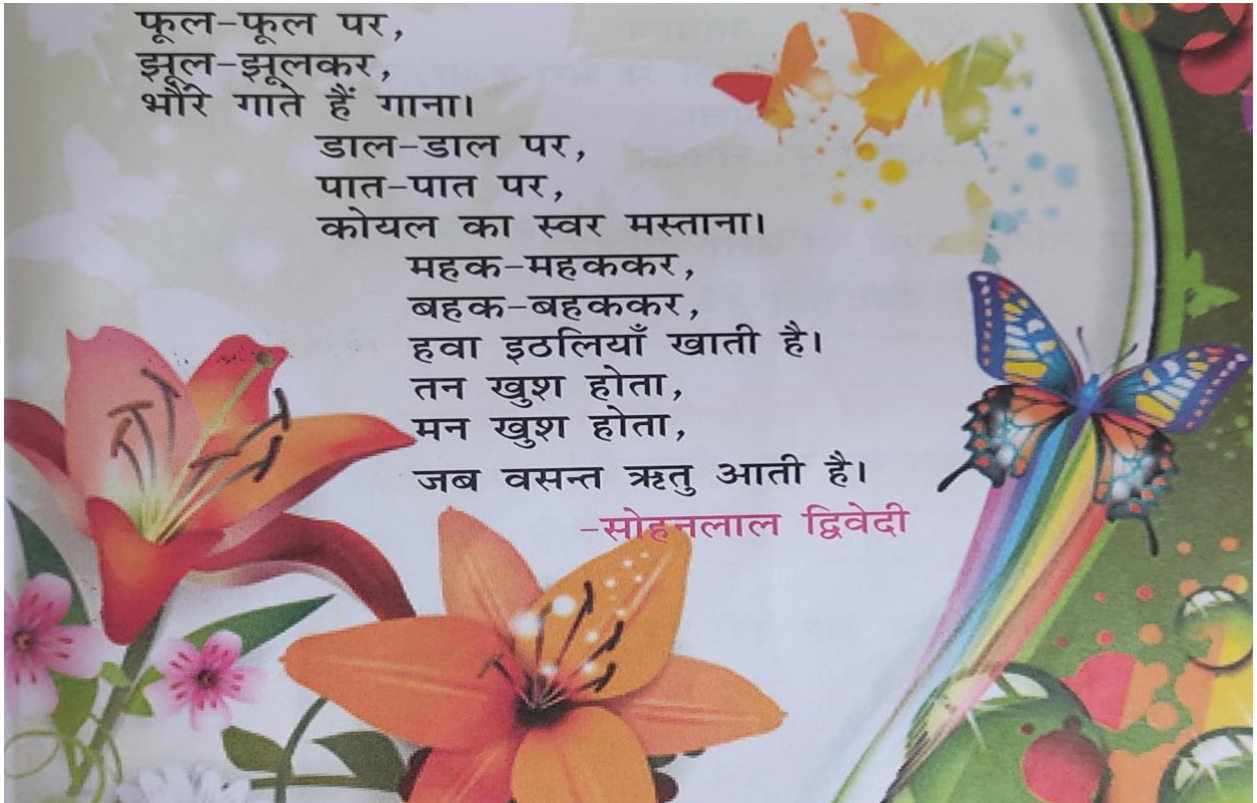 फूल-फूल पर,
झूल-झूलकर,
भौंरे गाते हैं गाना।
डाल-डाल पर,
पात-पात पर,
कोयल का स्वर मस्ताना।
महक-महककर,
बहक-बहककर,
हवा इठलियाँ खाती है।
तन खुश होता,
मन खुश होता,
जब वसन्त ऋतु आती है।
-सोहनलाल द्विवेदी